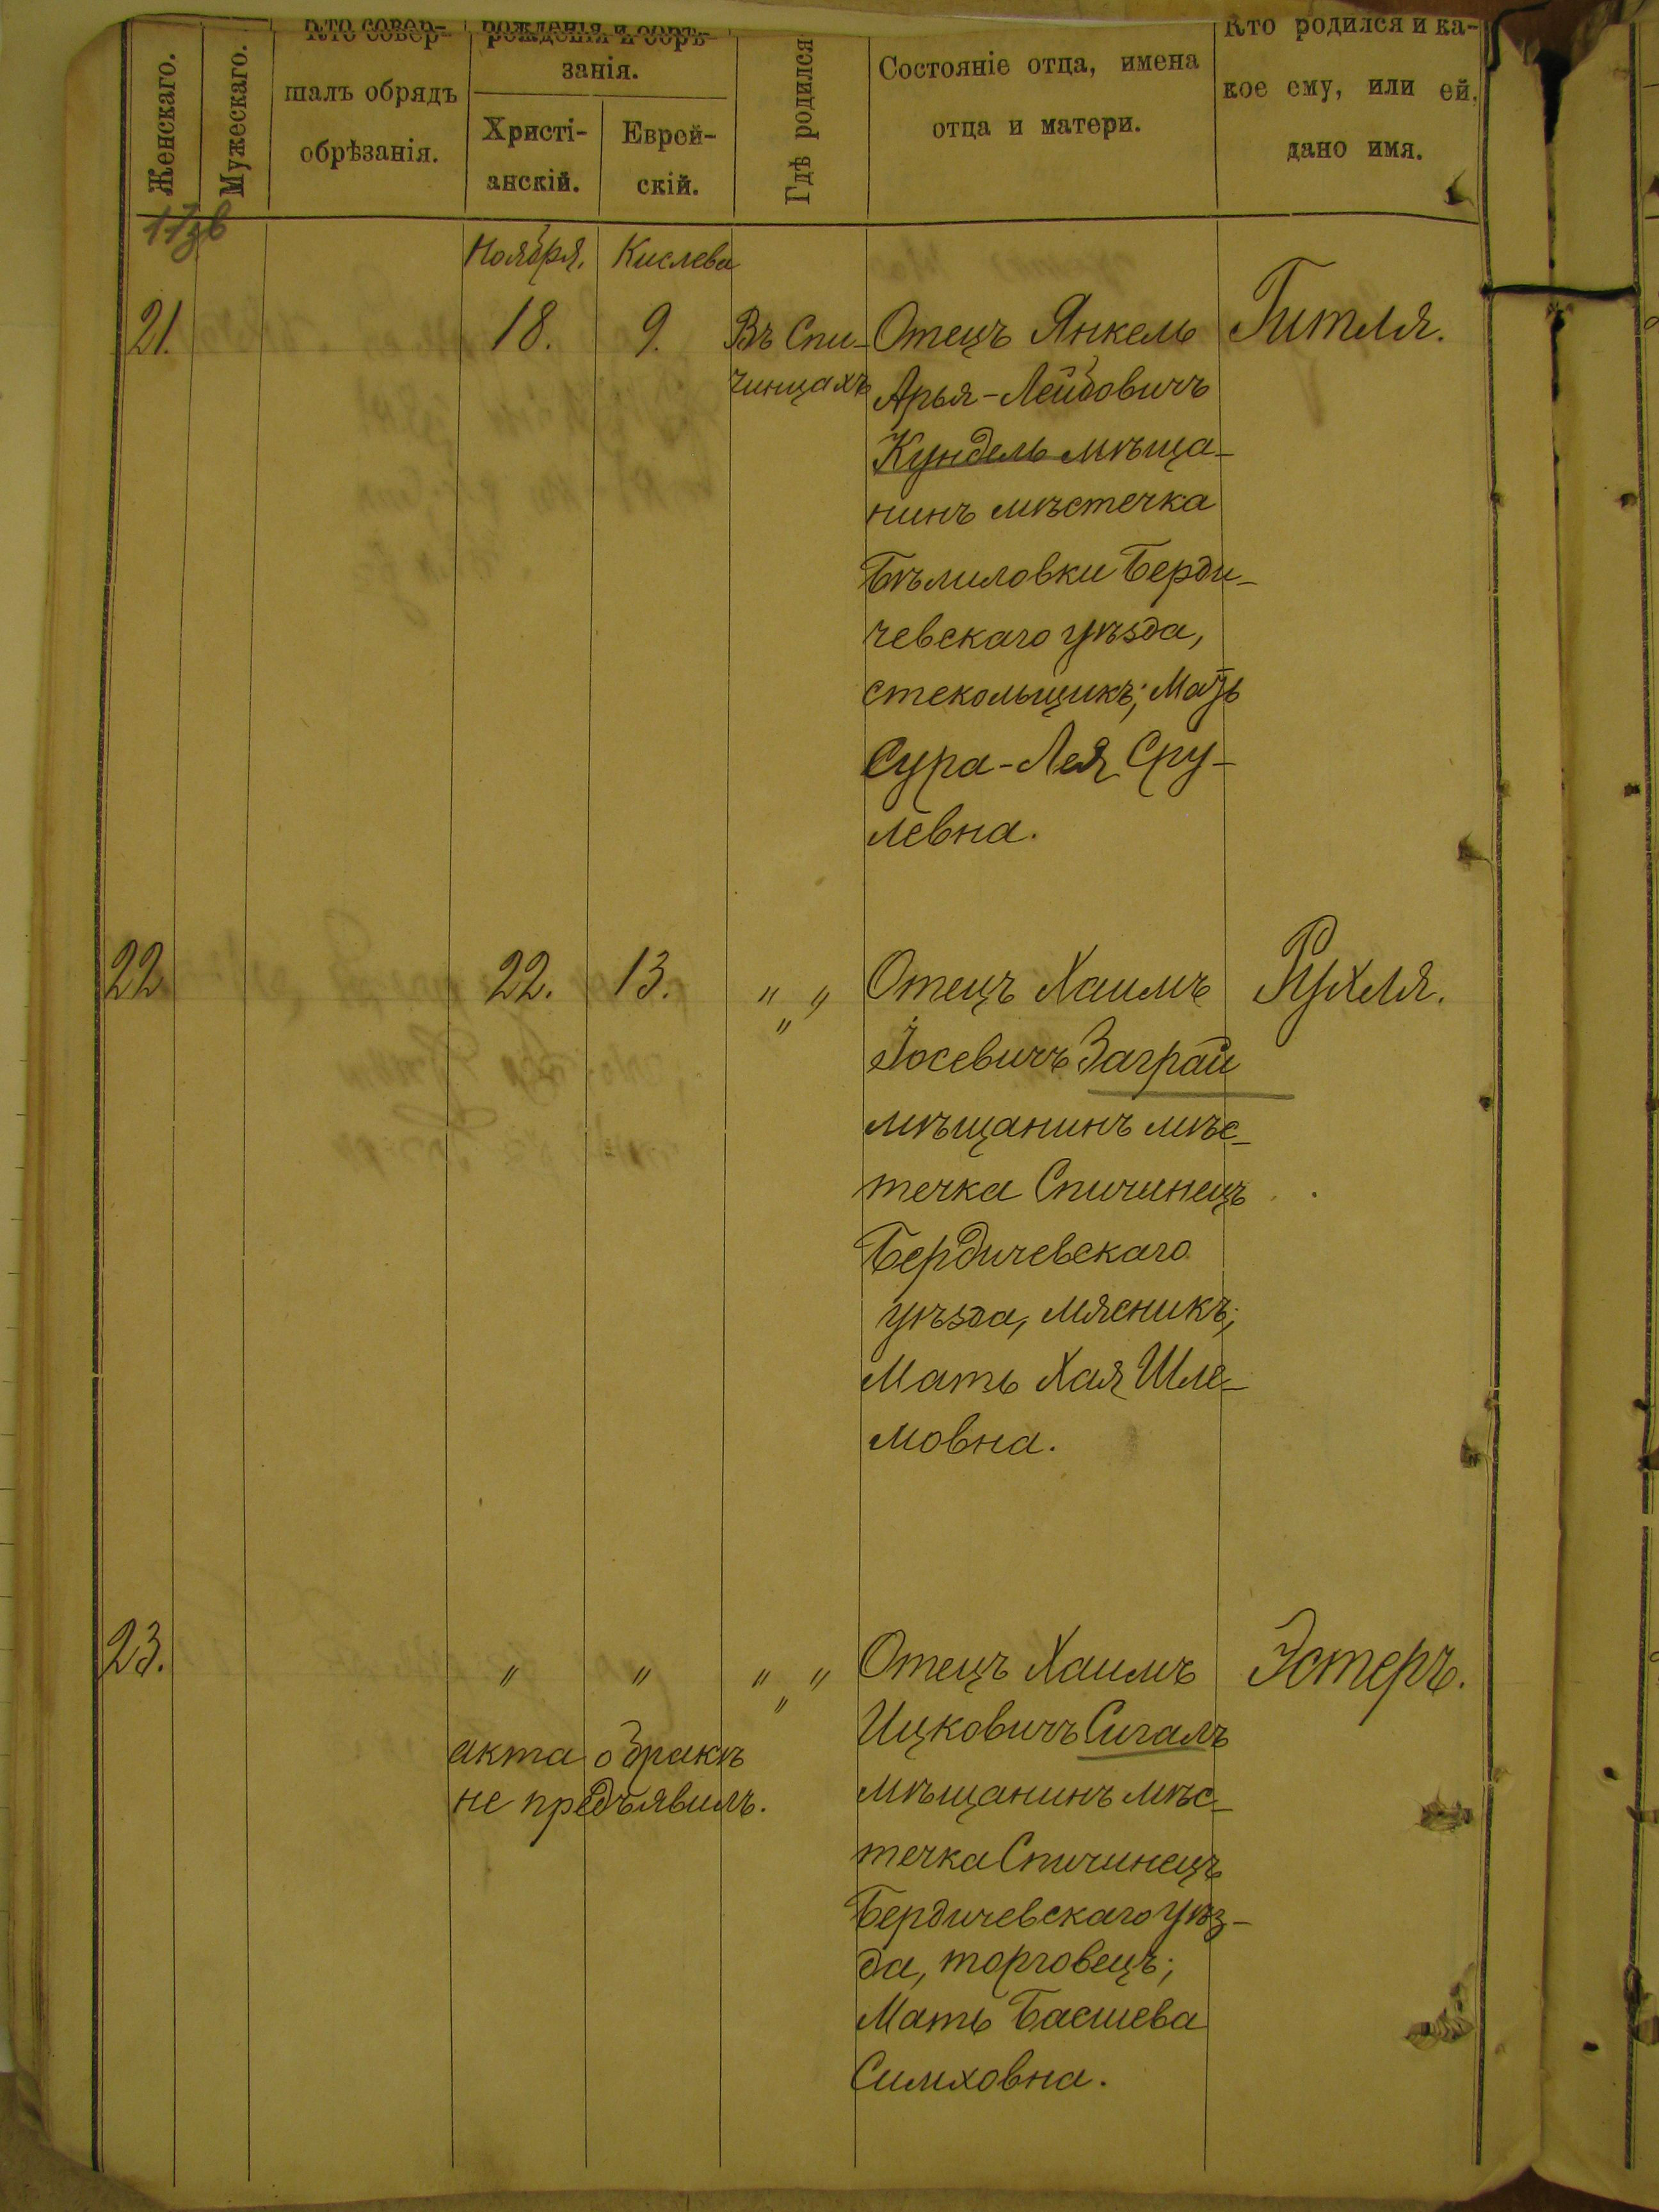 Женскаго.
Мужескаго.
Кто совер-
шалъ обрядъ
обрѣзанія.
рожденія и обрѣ-
занія.
Христі-
анскій.
Еврей-
скій.
Гдѣ родился
Состояніе отца, имена
отца и матери.
Кто родился и ка-
кое ему, или ей,
дано имя.
Ноября. Кислева
21. 18. 9. Въ Спи- Отецъ Янкель Гитля.
чинцахъ Арья-Лейбовичъ
Кундель мѣща-
нинъ мѣстечка
Бѣлиловки Берди-
чевскаго уѣзда,
стекольщикъ; Мать
Сура-Лея Сру-
левна.
22 22. 13. " " " Отецъ Хаимъ Рухля.
Іосевичъ Заграй
мѣщанинъ мѣс-
течка Спичинецъ
Бердичевскаго
уѣзда, мясникъ;
Мать Хая Шле-
мовна.
23. " " " " " Отецъ Хаимъ Эстеръ.
Ицковичъ Сигалъ
акта о бракѣ
не предъявилъ.
мѣщанинъ мѣс-
течка Спичинецъ
Бердичевскаго уѣз-
да, торговецъ;
Мать Басшева
Симховна.